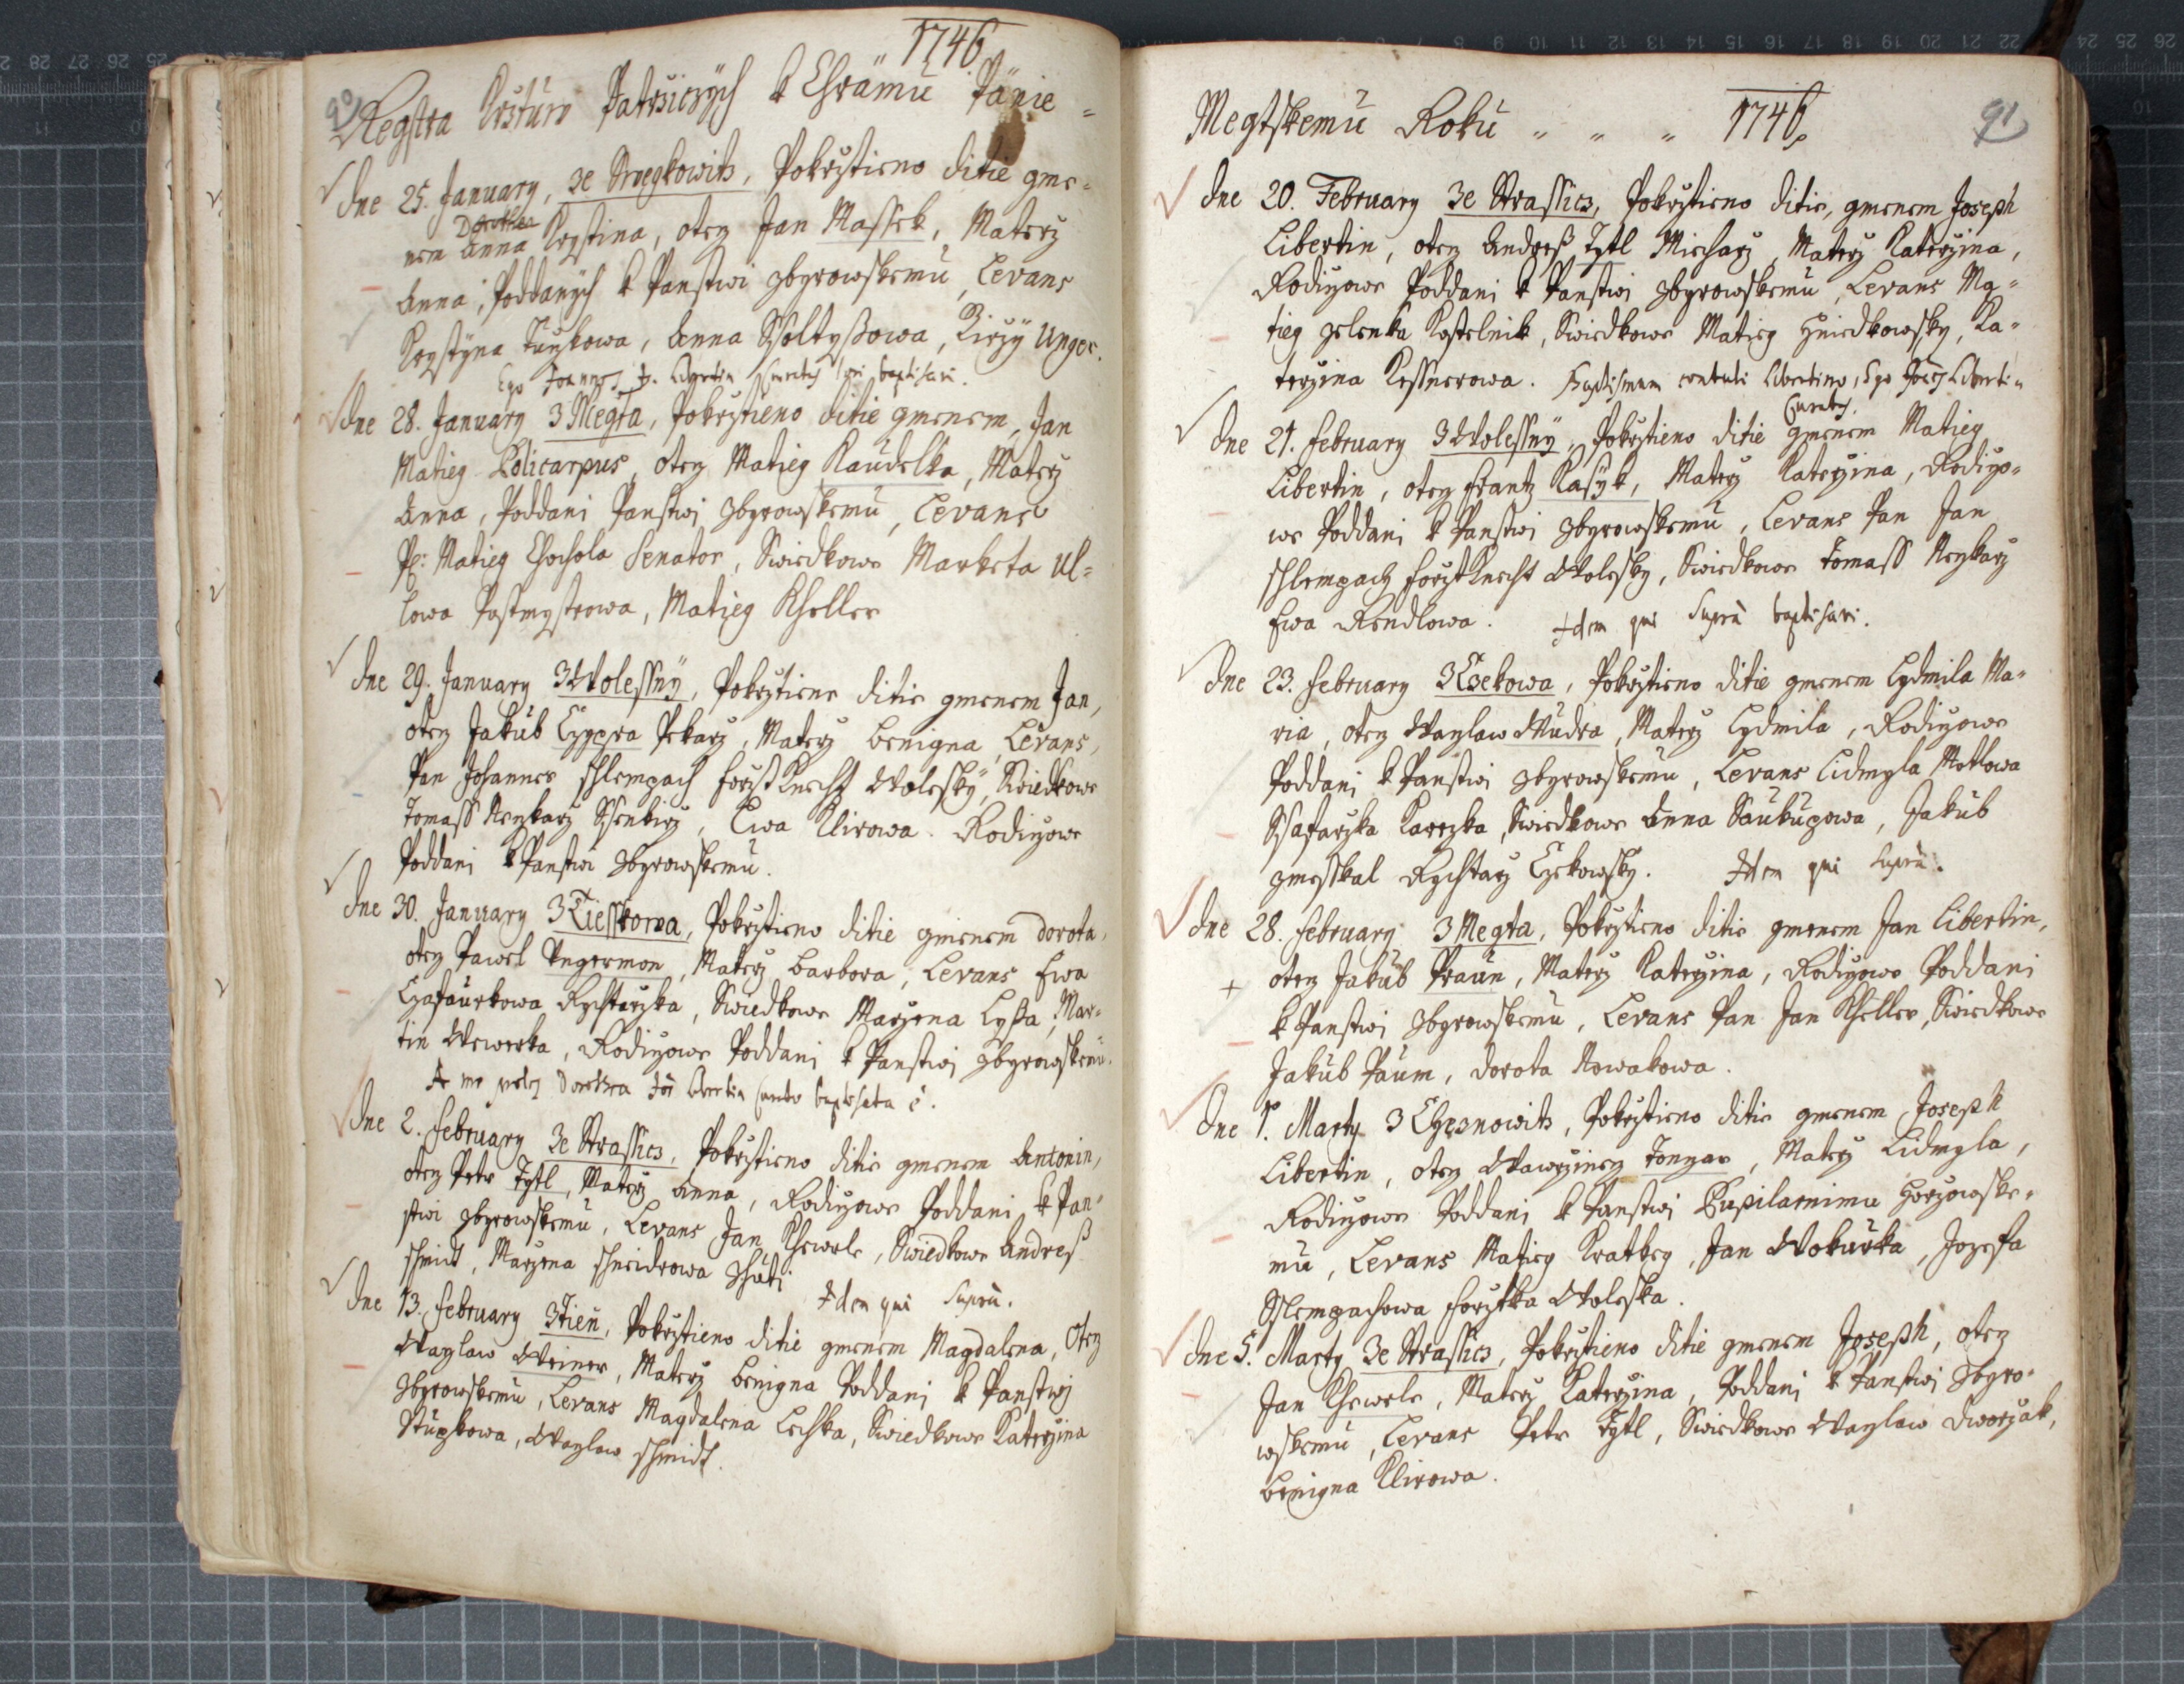 1746
90
Regstra Krstuw Patrziczych k Chrämu Pänie=
dne 25. January, Ze Strzegkowitz, Pokrzticno ditie gme=
Dorothea
nem Anna Krystina, otecz Jan Massek, Materz
Anna, Poddanych k Panstwi Zbyrowskemu, Levans
Krystyna Tuczkowa, Anna Ssoltyßowa, Girzy Unger.
Ego Joannes J. Libertin Curatus loci baptisavi.
dne 28. January Z Megta, Pokrztieno ditie gmenem, Jan
Matieg Policarpus, otecz Matieg Kaudelka, Materz
Anna, Poddani Panstwi Zbyrowskemu, Levans
Matieg Chochola Senator, Swiedkowe Marketa Ul=
lowa Postmystrowa, Matieg Kheller
dne 29. January Z Wolessny, Pokrztiene ditie gmenem Jan,
otecz Jakub Czypra Pekarz, Materz Benigna, Levans,
Pan Johannes Schlempach Forst Knecht Wolesky, Swiedkowe
Tomass Nezkarz Ssenkirz, Ewa Klirowa. Rodizowe
Poddani k Panstwi Zbyrowskemu.
dne 30. January Z Tiesskowa, Pokrztieno ditie gmenem Dorota,
otecz Pawel Ungermon, Materz Barbora, Levans Ewa
Czafaurkowa Rychtarzka, Swiedkowe Marzena Lyßa, Mar=
tin Wewerka, Rodizowe Poddani k Panstwi Zbyrowskemu.
A me Dorothea Libertin Curato baptisata e.
dne 2. February Ze Strassicz, Pokrztieno ditie gmenem Antonin,
otecz Petr Tytl, Materz Anna, Rodizowe Poddani k Pan=
stwi Zbyrowskemu, Levans Jan Khewele, Swiedkowe Andreß
Schmidt, Marzena Schneidrowa Zhuti
Idem qui Supra.
dne 13. February Z Tien, Pokrztieno ditie gmenem Magdalena, Otecz
Wazlaw Weiner, Materz Benigna Poddani k Panstwi
Zbyrowskemu, Levans Magdalena Lechka, Swiedkowe Katerzina
Stupkowa, Wazlaw Schmidt.
Megtskemu Roku „ „ „ 1746
91
dne 20. February Ze Strassicz, Pokrztieno ditie, gmenem Joseph
Libertin, otecz Andreß Tytl Miecharz, Materz Katerzina,
Rodizowe Poddani k Panstwi Zbyrowskemu, Levans Ma=
tieg Zelenka Kostelnik, Swiedkowe Matieg Hniedkowsky, Ka=
terzina Kessnerowa. Baptismum contuli Libertino, Ego Joes Liberti=
Curatus.
dne 21. February Z Wolessny, Pokrztieno ditie gmenem Matieg
Libertin, otecz Frantz Kasyk, Materz Katerzina, Rodizo=
we Poddani k Panstwi Zbyrowskemu, Levans Pan Jan
Schlempach Forst Knecht Wolesky, Swiedkowe Tomass Nezkarz
Ewa Rendlowa. Idem qui Supra baptisavi.
dne 23. February Z Czekowa, Pokrztieno ditie gmenem Lydmila Ma=
ria, otecz Wazlaw Mudra, Materz Lydmila, Rodizowe
Poddani k Panstwi Zbyrowskemu, Levans Lidmyla Motlowa
Ssafarzka Karezka, Swiedkowe Anna Saukupowa, Jakub
Zmesskal Rychtarz Czekowsky. Idem qui Supra.
dne 28. February Z Megta, Pokrztieno ditie gmenem Jan Libertin,
+ otecz Jakub Praun, Materz Katerzina, Rodizowe Poddani
k Panstwi Zbyrowskemu, Levans Pan Jan Kheller, Swiedkowe
Jakub Paum, Dorota Nowakowa.
dne 1. Marty Z Cheznowitz, Pokrztieno ditie gmenem Joseph
Libertin, otecz Wawrzinecz Tonzar, Materz Lidmyla,
Rodizowe Poddani k Panstwi Pupilarnimu Horzowske=
mu, Levans Matieg Kratkey, Jan Wokurka, Jozefa
Sslempachowa Forstka Woleska.
dne 5. Marty Ze Strassicz, Pokrztieno ditie gmenem Joseph, otecz
Jan Khewele, Materz Katerzina, Poddani k Panstwi Zbyro=
wskemu, Levans Petr Tytl, Swiedkowe Wazlaw Dworzak,
Benigna Klirowa.